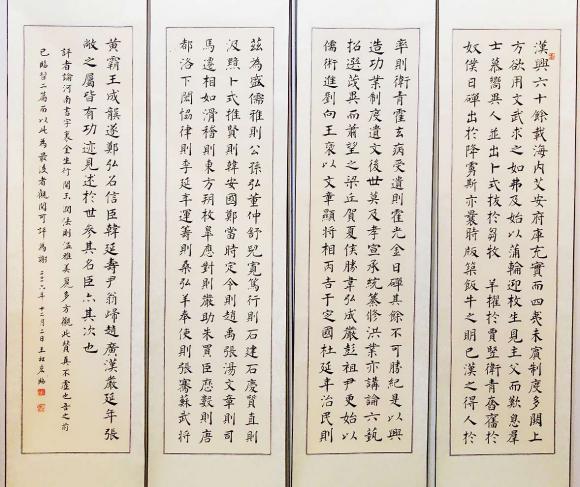 漢興六十餘載海内艾安府庫充實而四夷未賓制度多闕上
方欲用文武求之如弗及始以蒲輪迎枚生見主父而歎息群
士慕嚮異人並出卜式拔於芻牧 羊擢於賈豎衛青奮於
奴僕日磾出於降虜斯亦曩時版築飯牛之明已漢之得人於
率則衛青霍去病受遺則霍光金日磾其餘不可勝紀是以興
造功業制度遺文後世莫及孝宣承統纂修洪業亦講論六藝
招選茂異而蕭望之梁丘賀夏侯勝韋弘成嚴彭祖尹更始以
儒術進劉向王褒以文章顯將相丙吉于定國杜延年治民則
茲為盛儒雅則公孫弘董仲舒兒寬篤行則石建石慶質直則
汲黯卜式推賢則韓安國鄭當時定令則趙禹張湯文章則司
馬遷相如滑稽則東方朔枚皋應對則嚴助朱買臣歷數則唐
都洛下閎協律則李延年運籌則桑弘羊奉使則張騫蘇武將
黄霸王成龔遂鄭弘召信臣韓延壽尹翁歸趙廣漢嚴延年張
敞之屬皆有功迹見述於世參其名臣亦其次也
評者論河南書字裏金生行間玉潤法則溫雅美麗多方觀此贊真不虛也吾之前
已臨習二篇而以此為最後者觀閱可評為謝 二〇〇六年十二月二日王